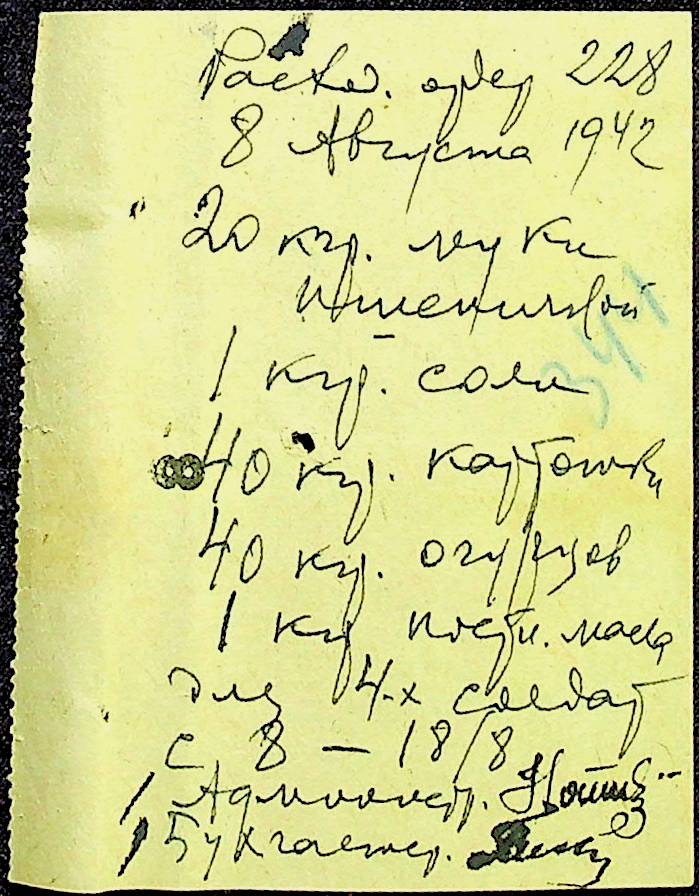 Расход. ордер 228
8 Августа 1942
20 кгр. муки
пшеничной
1 кгр. соли
40 кгр. картошки
40 кгр. огурцов
1 кгр постн. масла
для 4-х солдат
с 8 – 18/8
Администр.
Бухгалтер.
344